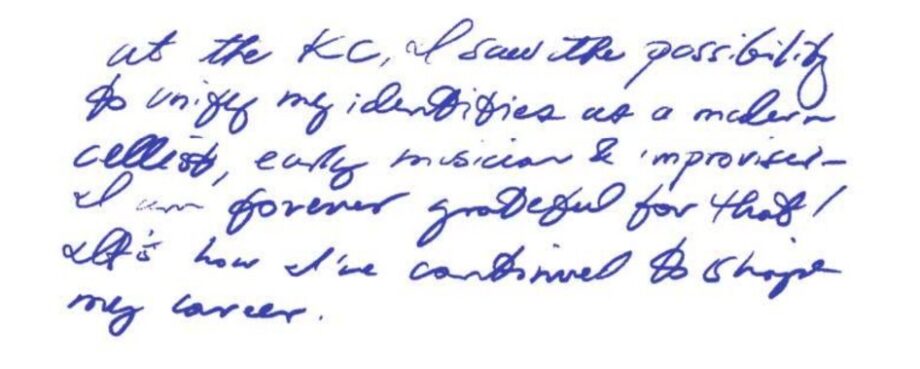 at the KC, I saw the possibility
to unify my identities as a modern
cellist, early musician & improviser–
I am forever grateful for that!
It's how I've continued to shape
my career.